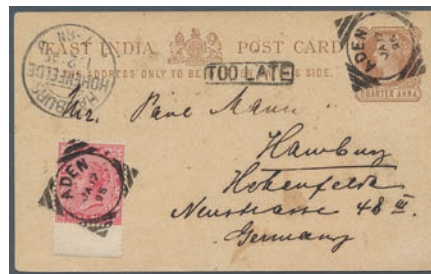 EAST INDIA POST CARD
THE ADDRESS ONLY TO BE WRITTEN ON THIS SIDE.
QUARTER ANNA
ADEN
JA 17
95
HAMBURG
HOHENFELDE
1.2.95
TOO LATE
Mr. Paul Mann
Hamburg
Hohenfelde
Neustrasse 48 III.
Germany
ADEN
JA 17
95